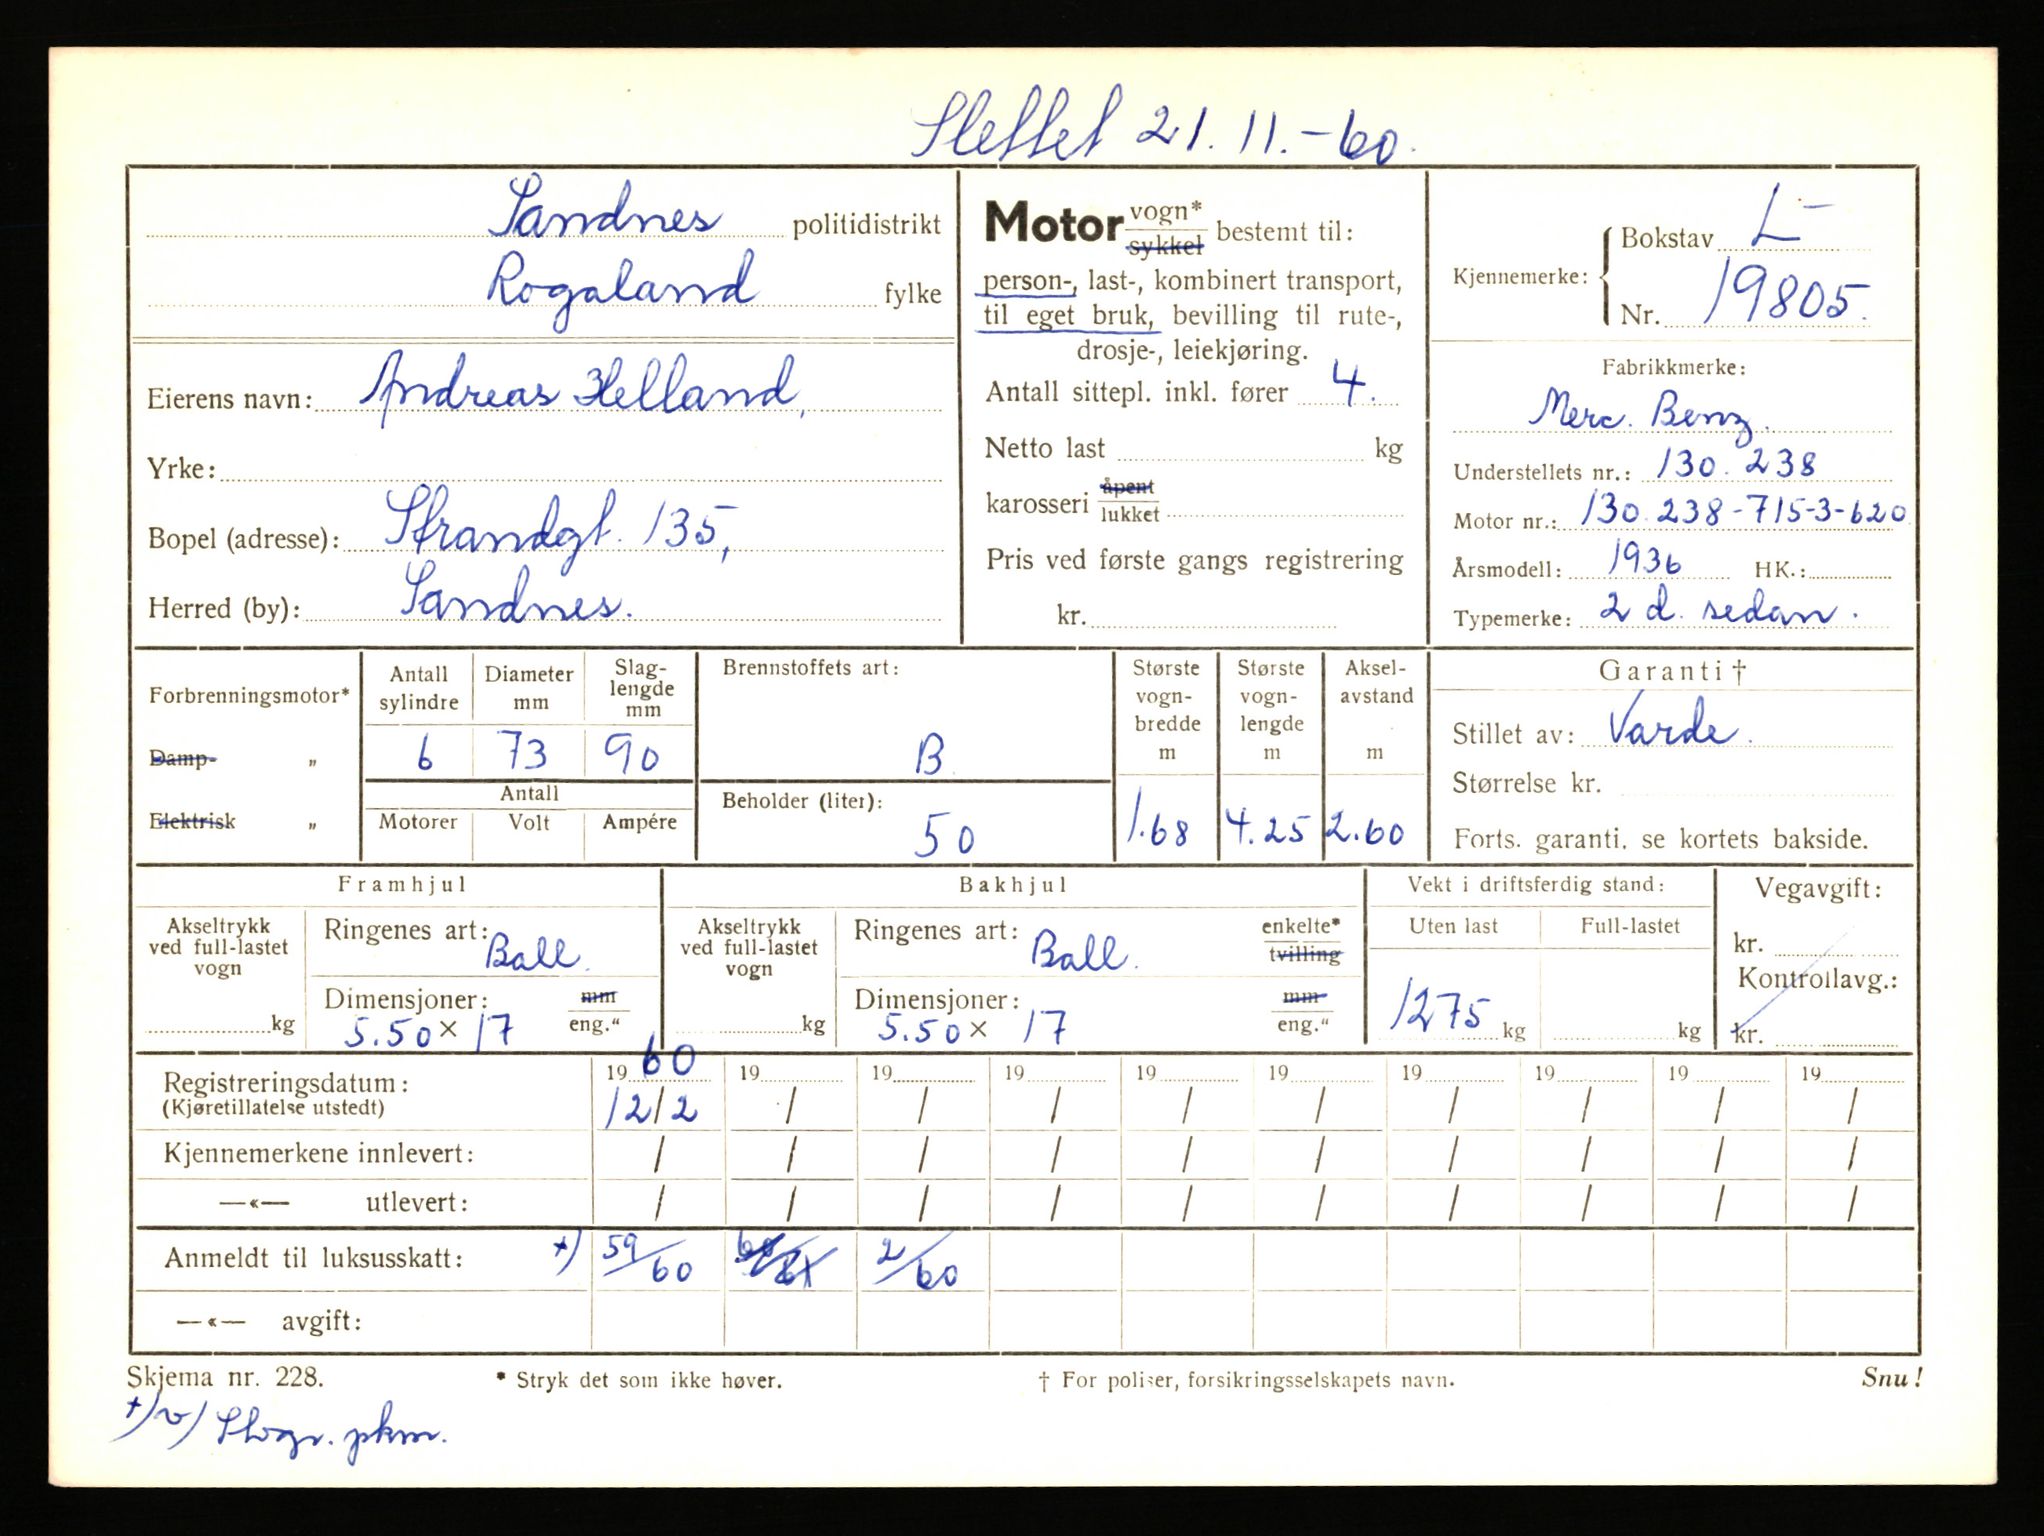 Slettet 21.11.-60.
Sandnes politidistrikt
Rogaland fylke
Eierens navn: Andreas Helland,
Yrke:
Bopel (adresse): Strandgt. 135,
Herred (by): Sandnes.
Motor vogn* sykkel bestemt til:
person-, last-, kombinert transport,
til eget bruk, bevilling til rute-,
drosje-, leiekjøring.
Antall sittepl. inkl. fører 4.
Netto last kg
karosseri åpent lukket
Pris ved første gangs registrering
kr.
Kjennemerke: Bokstav L-
Nr. 19805.
Fabrikkmerke:
Merc. Benz.
Understellets nr.: 130.238
Motor nr.: 130.238-715-3-620
Årsmodell: 1936 HK.:
Typemerke: 2 d. sedan.
Forbrenningsmotor*
Damp- „
Elektrisk „
Antall sylindre
Diameter mm
Slag-lengde mm
6 73 90
Antall
Motorer Volt Ampére
Brennstoffets art:
B
Beholder (liter):
50
Største vogn-bredde m
1.68
Største vogn-lengde m
4.25
Aksel-avstand m
2.60
Garanti †
Stillet av: Varde.
Størrelse kr.
Forts. garanti. se kortets bakside.
Framhjul
Akseltrykk ved full-lastet vogn
kg
Ringenes art: Ball.
Dimensjoner: mm
5.50 x 17 eng."
Bakhjul
Akseltrykk ved full-lastet vogn
kg
Ringenes art: Ball. enkelte* tvilling
Dimensjoner: mm
5.50 x 17 eng."
Vekt i driftsferdig stand:
Uten last Full-lastet
1275 kg kg
Vegavgift:
kr.
Kontrollavg.:
kr.
Registreringsdatum: 19 60 19 19 19 19 19 19 19 19 19
(Kjøretillatelse utstedt) 12/2 / / / / / / / / /
Kjennemerkene innlevert: / / / / / / / / / /
—«— utlevert: / / / / / / / / / /
Anmeldt til luksusskatt: +) 59/60 60/61 2/60
—«— avgift:
Skjema nr. 228. * Stryk det som ikke høver. † For poliser, forsikringsselskapets navn. Snu!